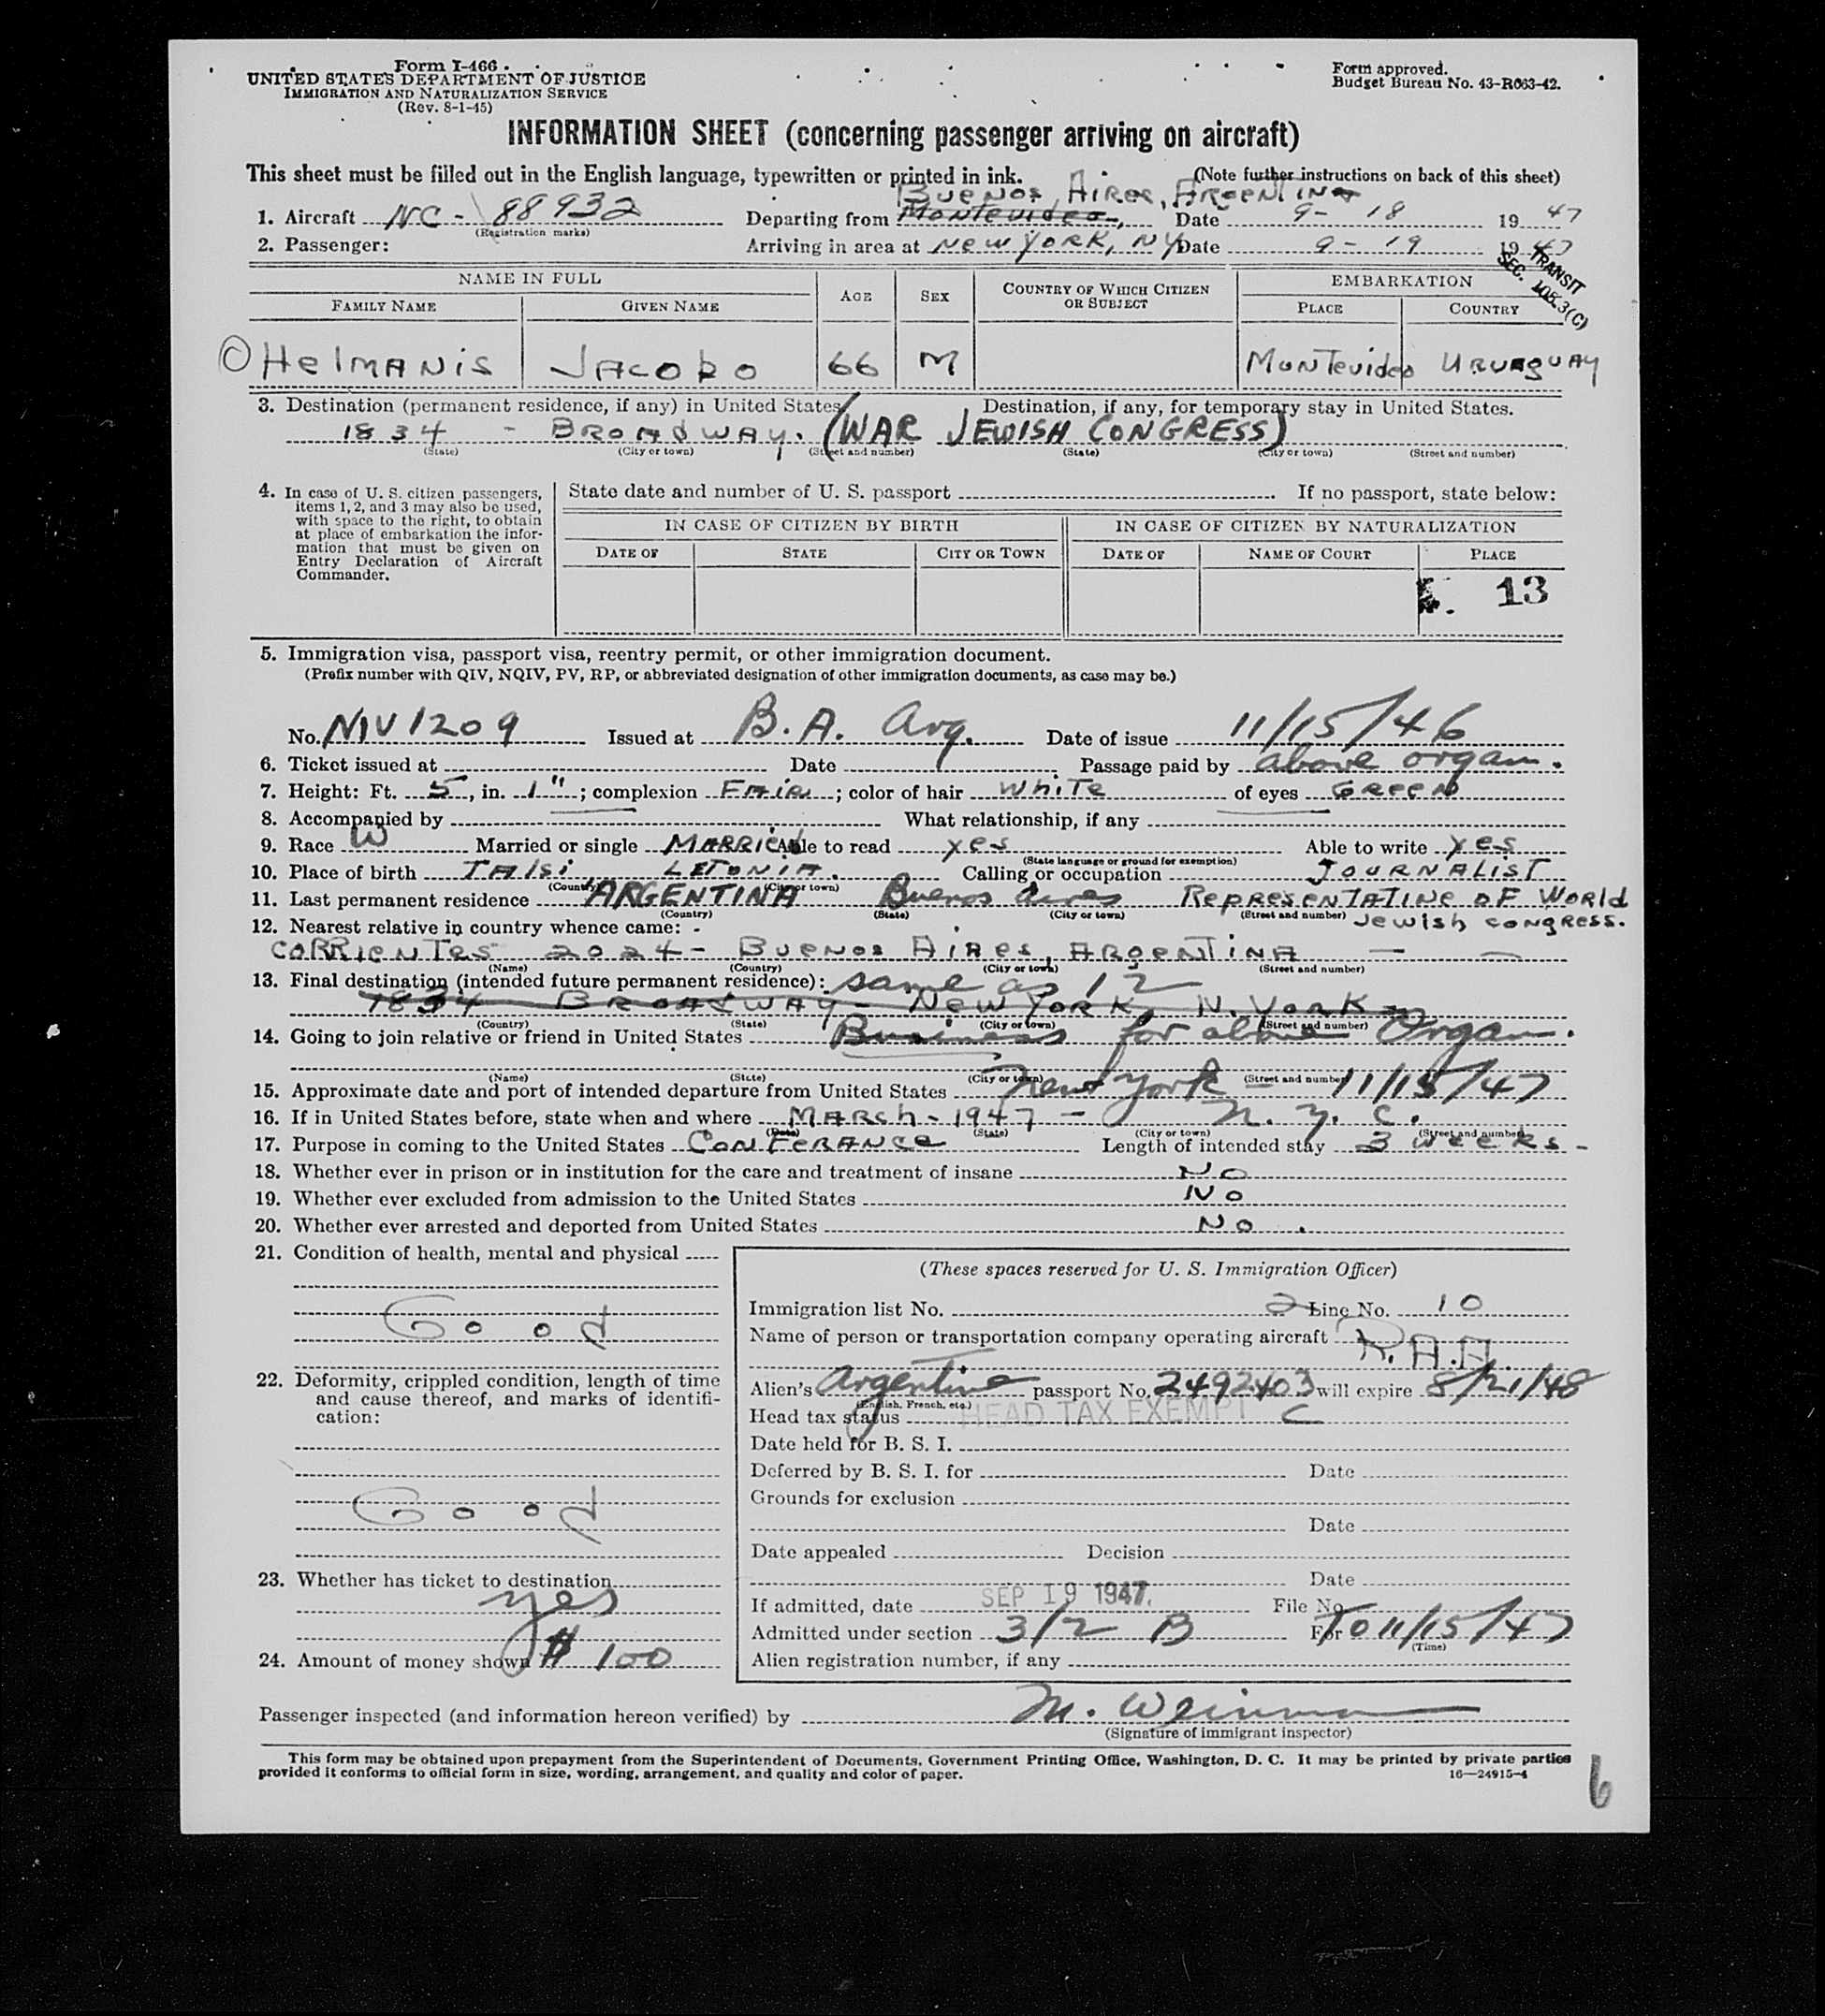 Form I-466
UNITED STATES DEPARTMENT OF JUSTICE
IMMIGRATION AND NATURALIZATION SERVICE
(Rev. 8-1-45)
Form approved.
Budget Bureau No. 43-R063-42.
INFORMATION SHEET (concerning passenger arriving on aircraft)
This sheet must be filled out in the English language, typewritten or printed in ink. (Note further instructions on back of this sheet)
Buenos Aires, Argentina
1. Aircraft NC-88932 Departing from Montevideo, Date 9-18 1947
(Registration marks)
2. Passenger: Arriving in area at New York, NY Date 9-19 1947
TRANSIT
SEC. 105.3(C)
NAME IN FULL AGE SEX COUNTRY OF WHICH CITIZEN OR SUBJECT EMBARKATION
FAMILY NAME GIVEN NAME PLACE COUNTRY
Helmanis Jacobo 66 M Montevideo Uruaguay
3. Destination (permanent residence, if any) in United States Destination, if any, for temporary stay in United States.
1834 - Broadway. (WAR JEWISH CONGRESS)
(State) (City or town) (Street and number) (State) (City or town) (Street and number)
4. In case of U. S. citizen passengers, items 1, 2, and 3 may also be used, with space to the right, to obtain at place of embarkation the information that must be given on Entry Declaration of Aircraft Commander.
State date and number of U. S. passport If no passport, state below:
IN CASE OF CITIZEN BY BIRTH IN CASE OF CITIZEN BY NATURALIZATION
DATE OF STATE CITY OR TOWN DATE OF NAME OF COURT PLACE
13
5. Immigration visa, passport visa, reentry permit, or other immigration document.
(Prefix number with QIV, NQIV, PV, RP, or abbreviated designation of other immigration documents, as case may be.)
No. NIV 1209 Issued at B.A. Arg. Date of issue 11/15/46
6. Ticket issued at Date Passage paid by above organ.
7. Height: Ft. 5, in. 1"; complexion Fair; color of hair White of eyes Green
8. Accompanied by What relationship, if any
9. Race W Married or single Married Able to read yes Able to write yes
(State language or ground for exemption)
10. Place of birth Talsi Letonia. Calling or occupation Journalist
(Country) (City or town)
11. Last permanent residence ARGENTINA Buenos Aires Representative of World Jewish Congress.
(Country) (State) (City or town) (Street and number)
12. Nearest relative in country whence came: -
Corrientes 2024 - Buenos Aires, Argentina
(Name) (Country) (City or town) (Street and number)
13. Final destination (intended future permanent residence): same as 12
1834 Broadway - New York, N. York
(Country) (State) (City or town) (Street and number)
14. Going to join relative or friend in United States Business for above Organ.
(Name) (State) (City or town) (Street and number)
15. Approximate date and port of intended departure from United States New York - 11/15/47
16. If in United States before, state when and where March - 1947 - N. Y. C.
(Date) (State) (City or town) (Street and number)
17. Purpose in coming to the United States Conferance Length of intended stay 3 weeks -
18. Whether ever in prison or in institution for the care and treatment of insane No
19. Whether ever excluded from admission to the United States No
20. Whether ever arrested and deported from United States No.
21. Condition of health, mental and physical
Good
22. Deformity, crippled condition, length of time and cause thereof, and marks of identification:
Good
23. Whether has ticket to destination
yes
24. Amount of money shown $ 100
(These spaces reserved for U. S. Immigration Officer)
Immigration list No. 2 Line No. 10
Name of person or transportation company operating aircraft P.A.A.
Alien's Argentine passport No. 2492403 will expire 8/21/48
(English, French, etc.)
Head tax status HEAD TAX EXEMPT C
Date held for B. S. I.
Deferred by B. S. I. for Date
Grounds for exclusion
Date
Date appealed Decision
Date
If admitted, date SEP 19 1947. File No.
Admitted under section 3/2 B For To 11/15/47
(Time)
Alien registration number, if any
Passenger inspected (and information hereon verified) by M. Weinman
(Signature of immigrant inspector)
This form may be obtained upon prepayment from the Superintendent of Documents, Government Printing Office, Washington, D. C. It may be printed by private parties
provided it conforms to official form in size, wording, arrangement, and quality and color of paper.
16—24915-4
6